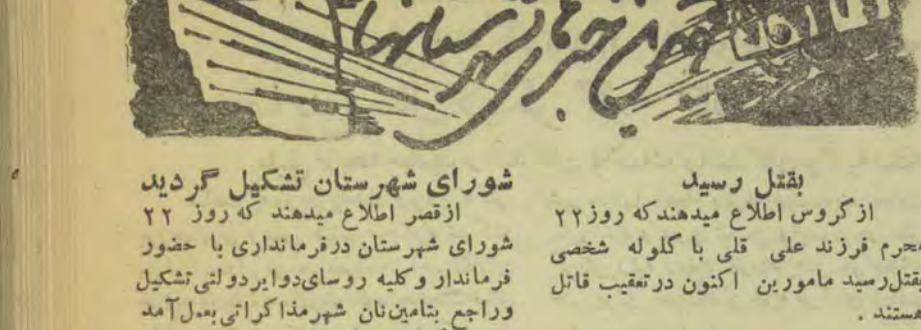 خبری شهرستانها
بقتل رسید
از کروس اطلاع میدهند که روز ۲۲
محرم فرزند علی قلی با گلوله شخصی
بقتل رسید مامورین اکنون در تعقیب قاتل
هستند .
شورای شهرستان تشکیل گردید
از قصر اطلاع میدهند که روز ۲۲
شورای شهرستان در فرمانداری با حضور
فرماندار و کلیه روسای دوایر دولتی تشکیل
وراجع بتامین نان شهر مذاکراتی بعمل آمد